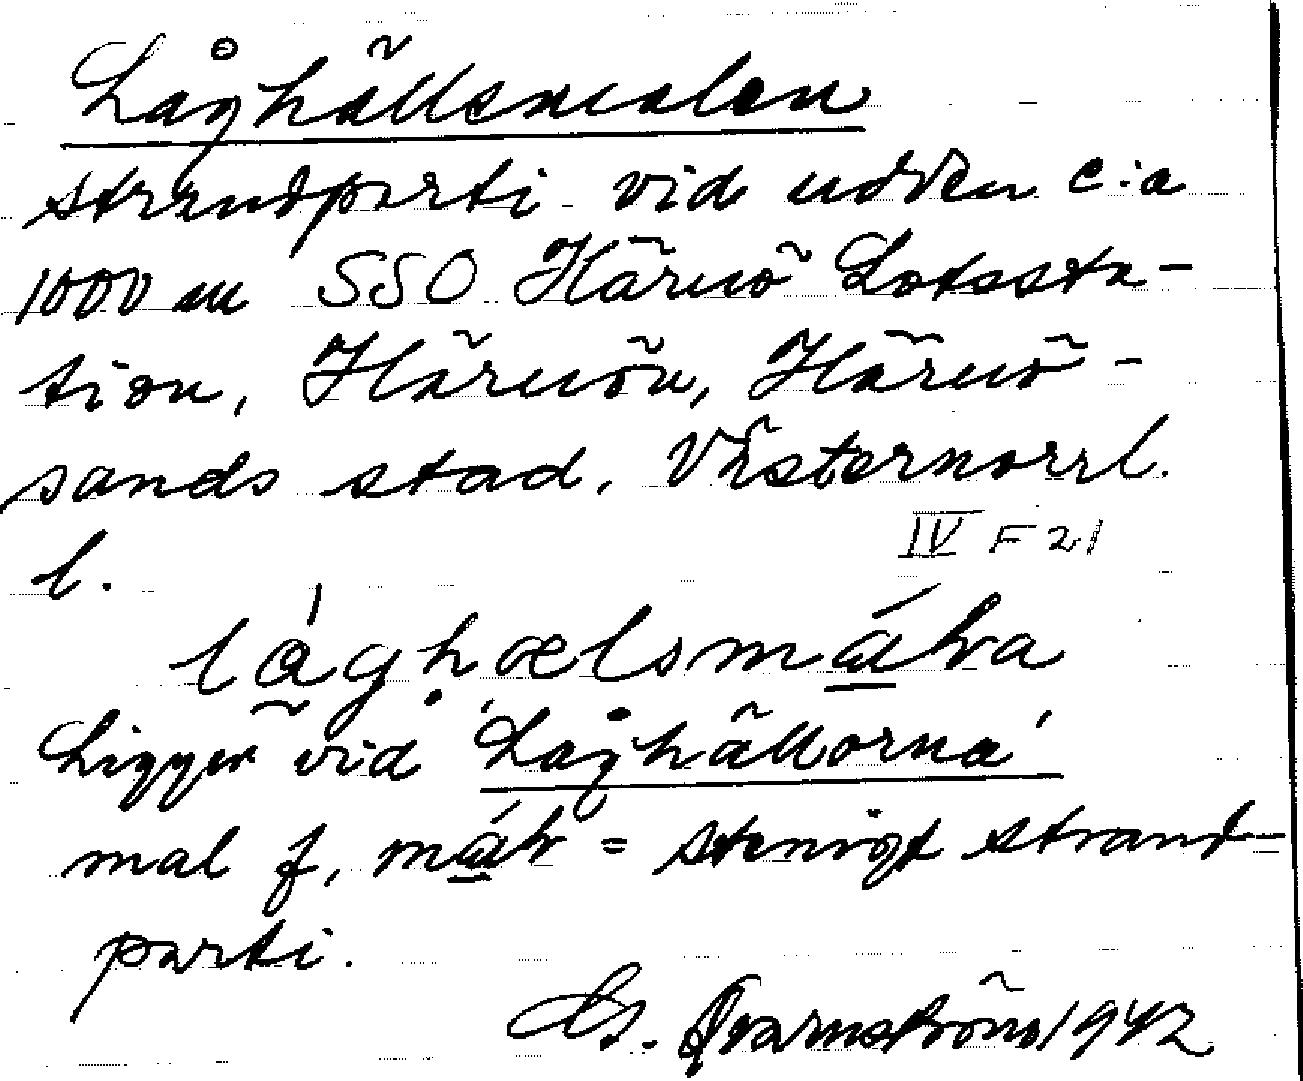 Låghällsmalen
strandparti vid udden c:a
1000 m SSO Härnö Lotssta-
tion, Härnön, Härnö-
sands stad, Västernorrl.
l.
IV F 21
lághælsmáḷa
Ligger vid 'Låghällorna'
mal f, máḷ = stenigt strand-
parti.
G. Qvarnström 1942